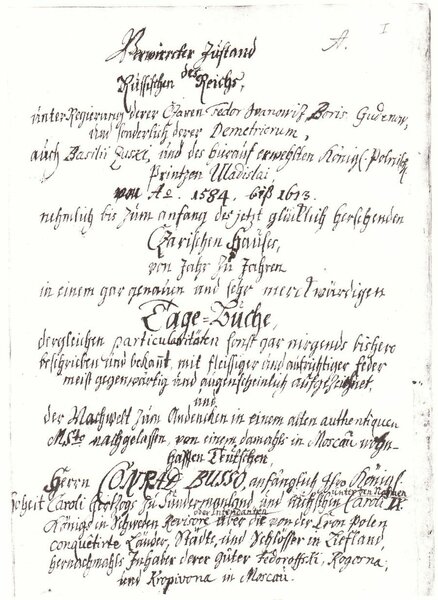 A. I
Verwirrter Zustand
des
Russischen Reichs,
unter Regierung derer Czaren Fedor Ivanowiz Boris Gudenow,
und sonderlich derer Demetriorum,
auch Basilii Zuski, und des hierauf erwehlten Königl. Polnischen
Printzen Uladislai,
von Ao. 1584. biß 1613.
nehmlich bis zum anfang des jetzt glücklich herschenden
Czarischen Hauses,
von Jahr zu Jahren
in einem gar genauen und sehr merckwürdigen
Tage-Buche,
dergleichen particularitäten sonst gar nirgends bishero
beschrieben und bekant, mit fleissiger und aufrichtiger feder
meist gegenwärtig und augenscheinlich aufgezeichnet,
und
der Nachwelt zum Andencken in einem alten authentiquen
MSto nachgelassen, von einem damahls in Moscau wohn-
hafften Teutschen,
Herrn CONRAD BUSSO, anfänglich Ihro Königl.
Hoheit Caroli Hertzogs zu Sudermanland und nachgehends unter den Nahmen Caroli IX.
Königs in Schweden Revisore oder Intendanten über die von der Cron Polen
conquetirte Länder, Städte, und Schlösser in Liefland,
hernachmahls Inhaber derer Güter Fedoroffski, Rogorna,
und Kropivona in Moscau.